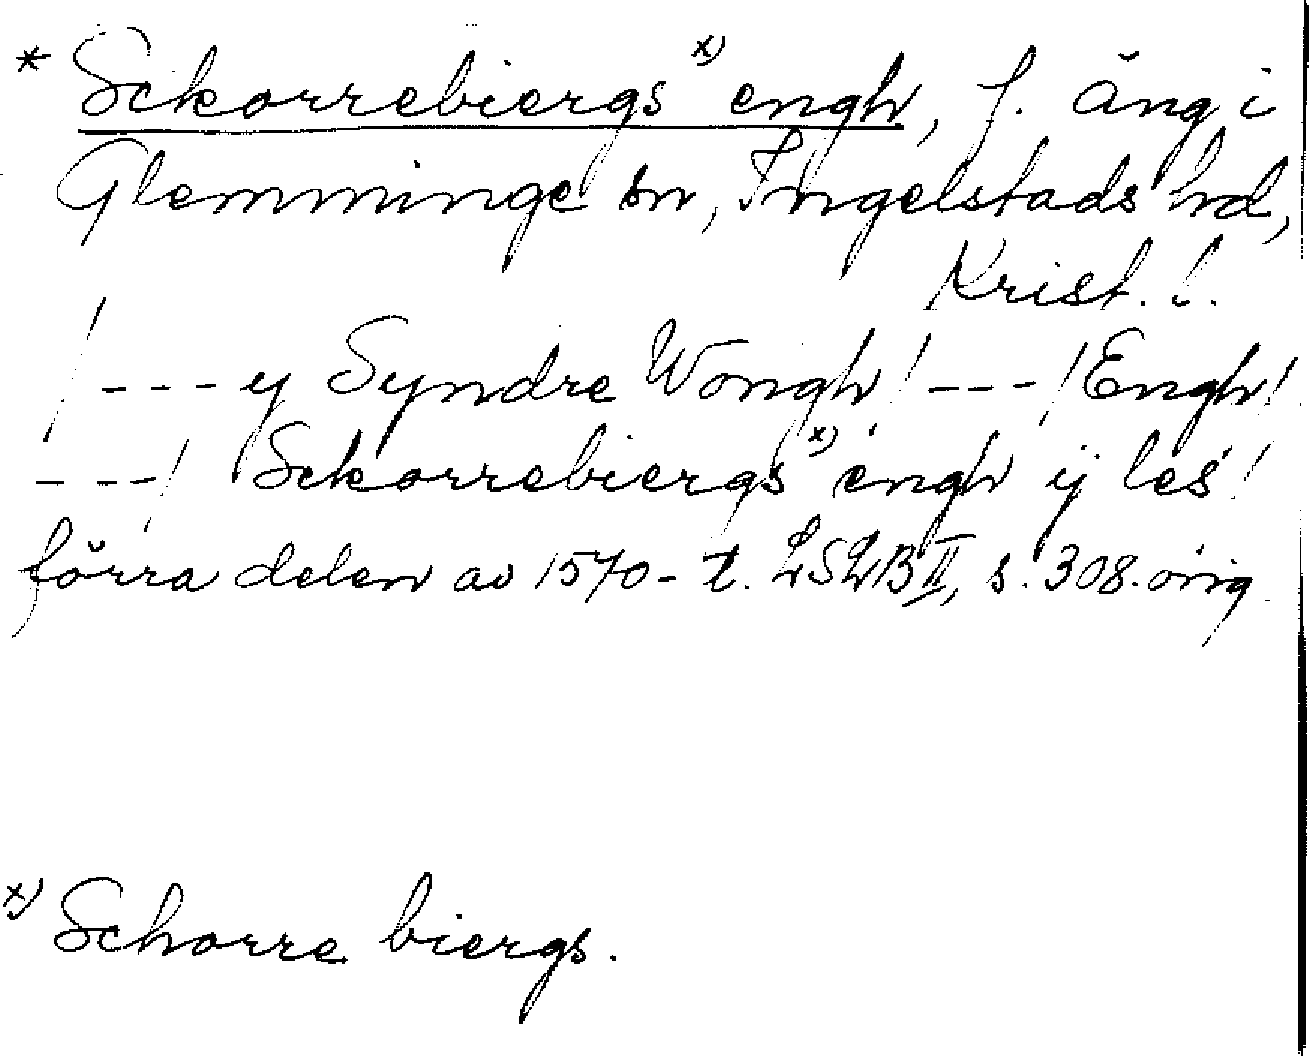 * Sckorrebiergs x) engh, f. äng i
Glemminge sn, Ingelstads hd,
Krist. l.
/---y Syndre Wongh/---/Engh/
---/ Sckorrebiergs x) engh ij les/
förra delen av 1570-t. LSLB II, s. 308. orig.
x) Schorre biergs.